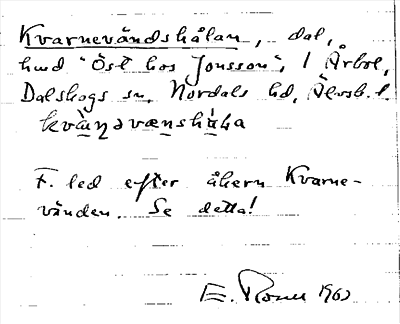 Kvarnevändshålan, dal,
hmd "Öst hos Jonsson", 1 Årbol,
Dalskogs sn, Nordals hd, Älvsb. l.
F. led efter åkern Kvarne-
vänden. Se detta!
E. 1960